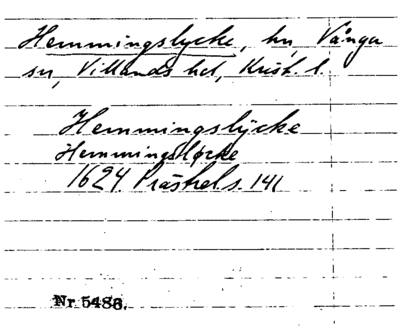 Hemmingslycke, hn, Vånga
sn, Villands hd, Krist. l.
Hemmingslycke
Hemmingsløcke
1624 Prästrel s. 141
Nr 5486.